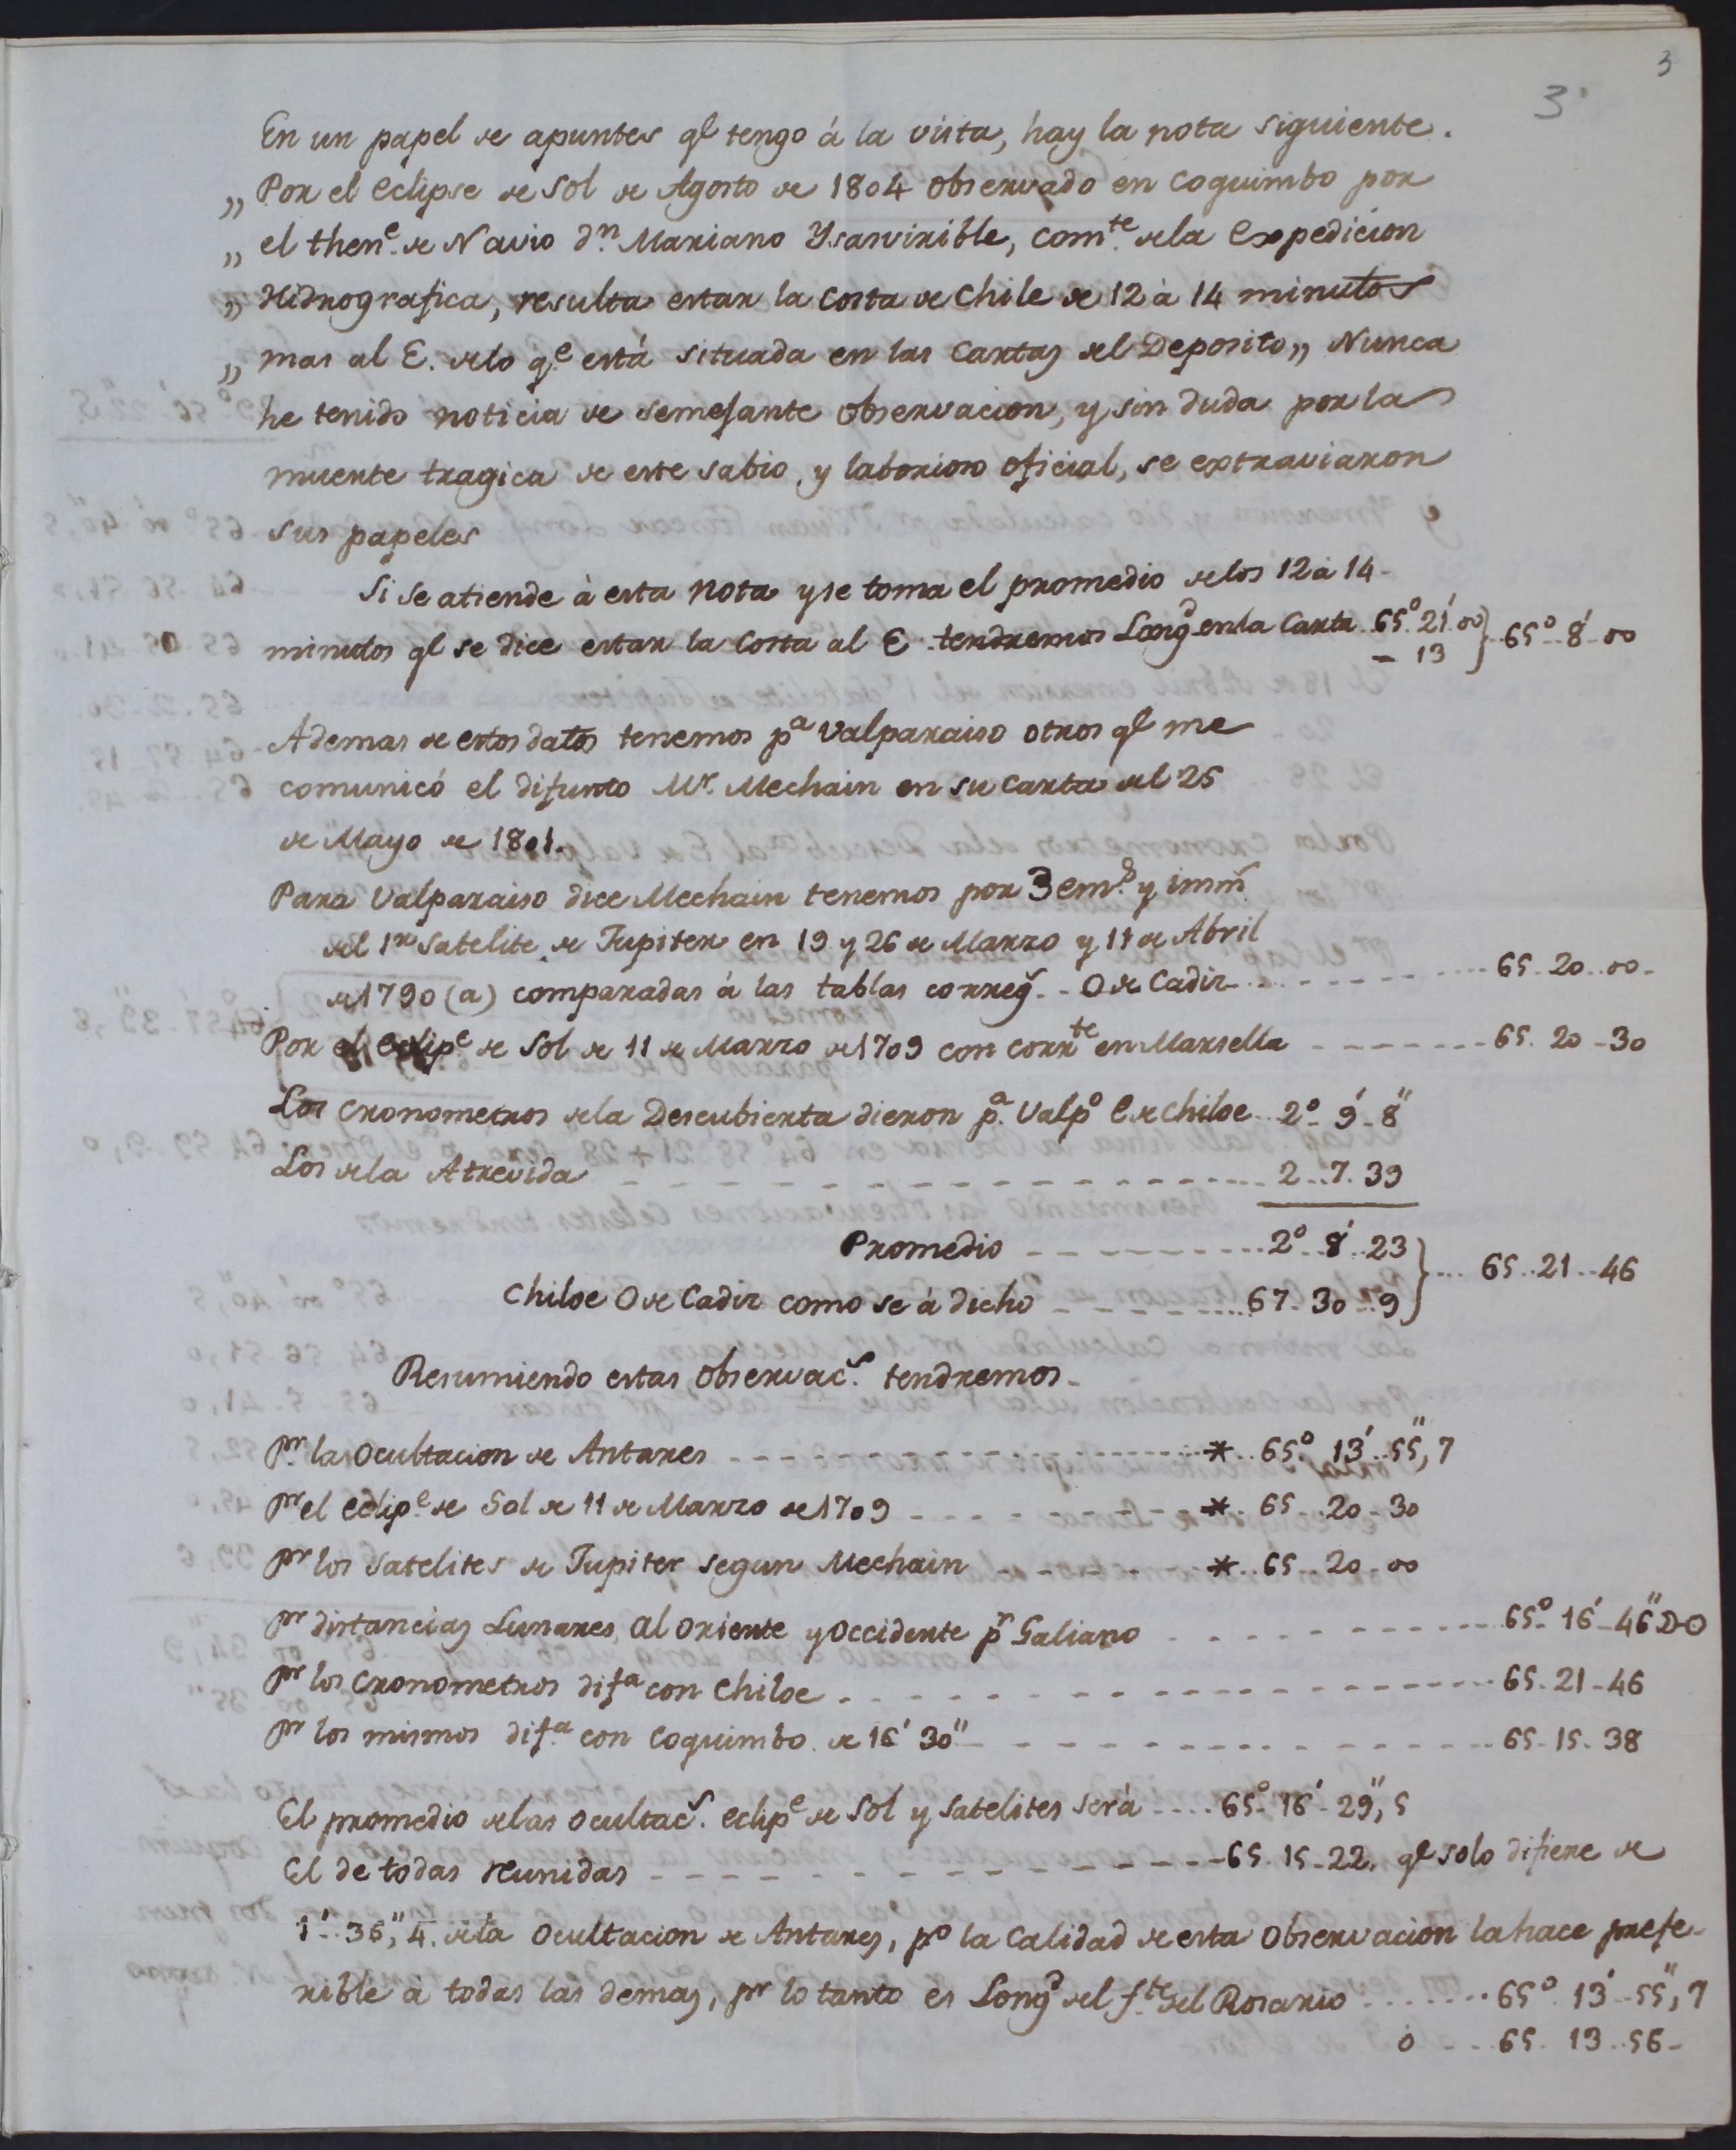 3
3
En un papel de apuntes qe tengo á la vista, hay la nota siguiente.
„ Por el eclipse de Sol de Agosto de 1804 observado en Coquimbo por
„ el thene. de Navio dn. Mariano Ysasvirible, comte. dela Expedicion
„ Hidrografica, resulta estar la Costa de Chile de 12 à 14 minutos
„ mas al E. delo qe. está situada en las Cartas del Deposito„ Nunca
he tenido noticia de semejante observacion, y sin duda por la
muerte tragica de este sabio, y laborioso oficial, se extraviaron
sus papeles
Si se atiende à esta nota y se toma el promedio delos 12 à 14-
minutos qe se dice estar la Costa al E. tendremos Longd enla Carta 65°.21'.00 } 65°..8'..00
- 13
Ademas de estos datos tenemos pa Valparaiso otros qe me
comunicó el difunto Mr. Mechain en su carta del 25
de Mayo de 1801.
Para Valparaiso dice Mechain tenemos por 3 ems. y imm
del 1ro satelite de Jupiter en 19 y 26 de Marzo y 11 de Abril
de 1790 (a) comparadas à las tablas corregs. - O de Cadiz - - - 65..20..00-
Por el eclipe de Sol de 11 de Marzo de 1709 con corrte en Marsella - - - 65. 20 -30
Los cronometros dela Descubierta dieron pa. Valpo E. de Chiloe.. 2°. 9'. 8"
Los dela Atrevida - - - 2..7.39
Promedio - - - 2°..8'..23 } ... 65..21..46
Chiloe O de Cadiz como se à dicho - - - 67..30..9
Resumiendo estas observacs. tendremos-
pr. la Ocultacion de Antares - - - *.. 65°. 13'..55",7
pr el eclipe. de Sol de 11 de Marzo de 1709 - - - *. 65..20-30
pr los satelites de Jupiter segun Mechain - - - *..65..20-00
pr distancias Lunares al oriente y occidente pr Galiano - - - 65°. 16'-46" D-O
pr los Cronometros difa con Chiloe - - - 65.21-46
pr los mismos difa. con Coquimbo de 16' 30" - - - 65-15-38
El promedio delas ocultacs. eclipe de Sol y satelites será .... 65°. 16'-29",5
El de todas reunidas - - - 65.15-22, qe solo difiere de
1'..35",4. dela Ocultacion de Antares, po la Calidad de esta observacion la hace prefe-
rible à todas las demas, pr lo tanto es Longd del fte del Rosario ....... 65°. 13'-55",7
ó - - - 65. 13..56-